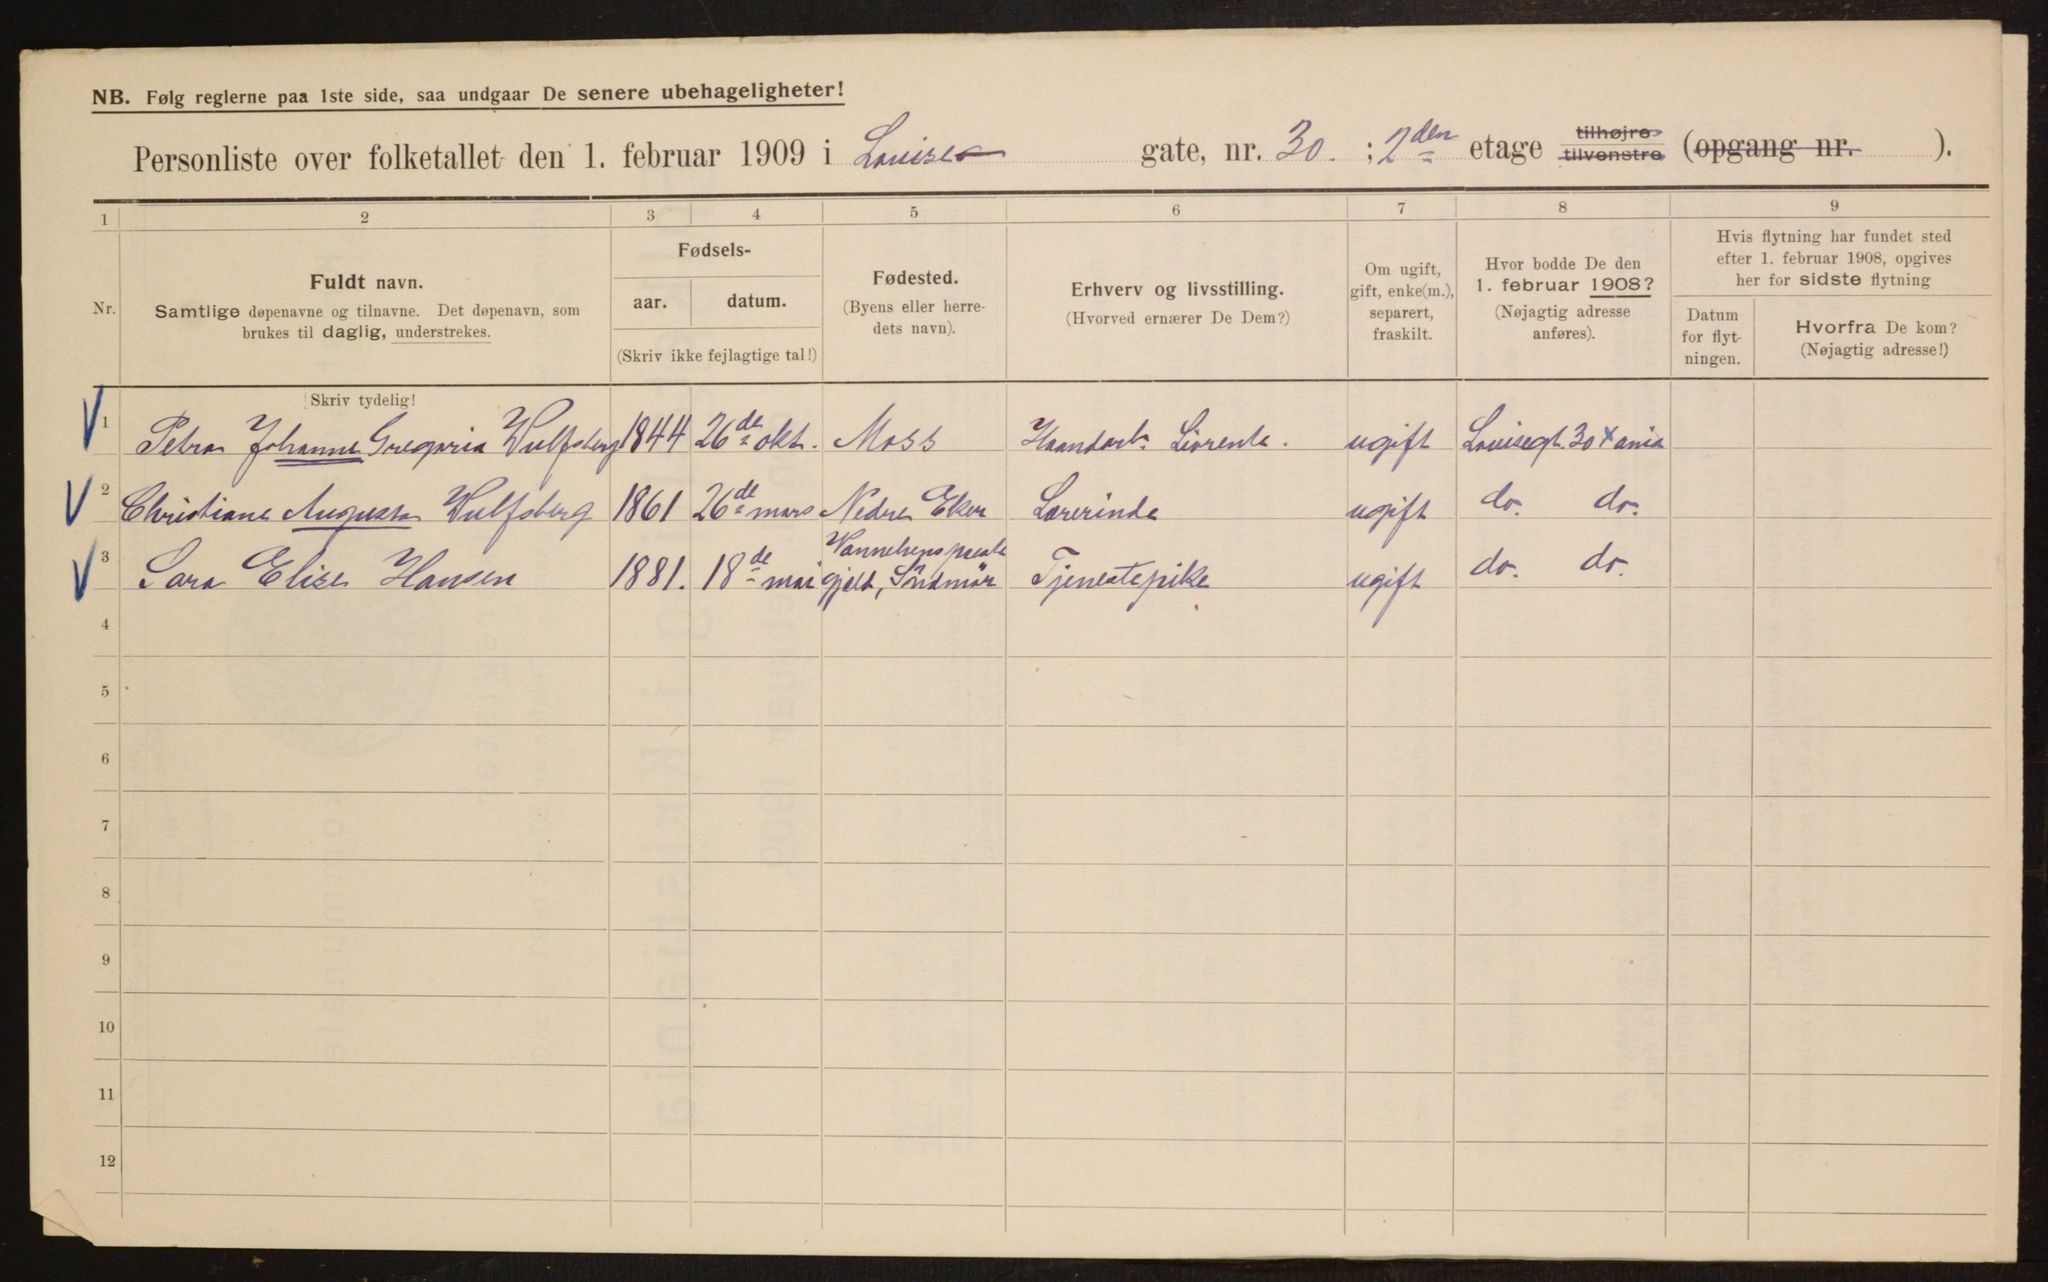 NB. Følg reglerne paa 1ste side, saa undgaar De senere ubehageligheter!
Personliste over folketallet den 1. februar 1909 i Louise gate, nr. 30. ; 2den etage tilhøjre tilvenstre (opgang nr. ).
1 2 3 4 5 6 7 8 9
Nr.
Fuldt navn.
Samtlige døpenavne og tilnavne. Det døpenavn, som
brukes til daglig, understrekes.
Fødsels-
aar. datum.
(Skriv ikke fejlagtige tal!)
Fødested.
(Byens eller herre-
dets navn).
Erhverv og livsstilling.
(Hvorved ernærer De Dem?)
Om ugift,
gift, enke(m.),
separert,
fraskilt.
Hvor bodde De den
1. februar 1908?
(Nøjagtig adresse
anføres).
Hvis flytning har fundet sted
efter 1. februar 1908, opgives
her for sidste flytning
Datum
for flyt-
ningen.
Hvorfra De kom?
(Nøjagtig adresse!)
Skriv tydelig!
1 Petra Johanne Gregoria Wulfsberg 1844 26de okt. Moss Haandarb. Livrente. ugift Louisegt. 30 Xania
2 Christiane Augusta Wulfsberg 1861 26de mars Nedre Eker Lærerinde ugift do. do.
3 Sara Elise Hansen 1881. 18de mai Vannelvens preste
gjeld, Søndmør Tjenestepike ugift do. do.
4
5
6
7
8
9
10
11
12